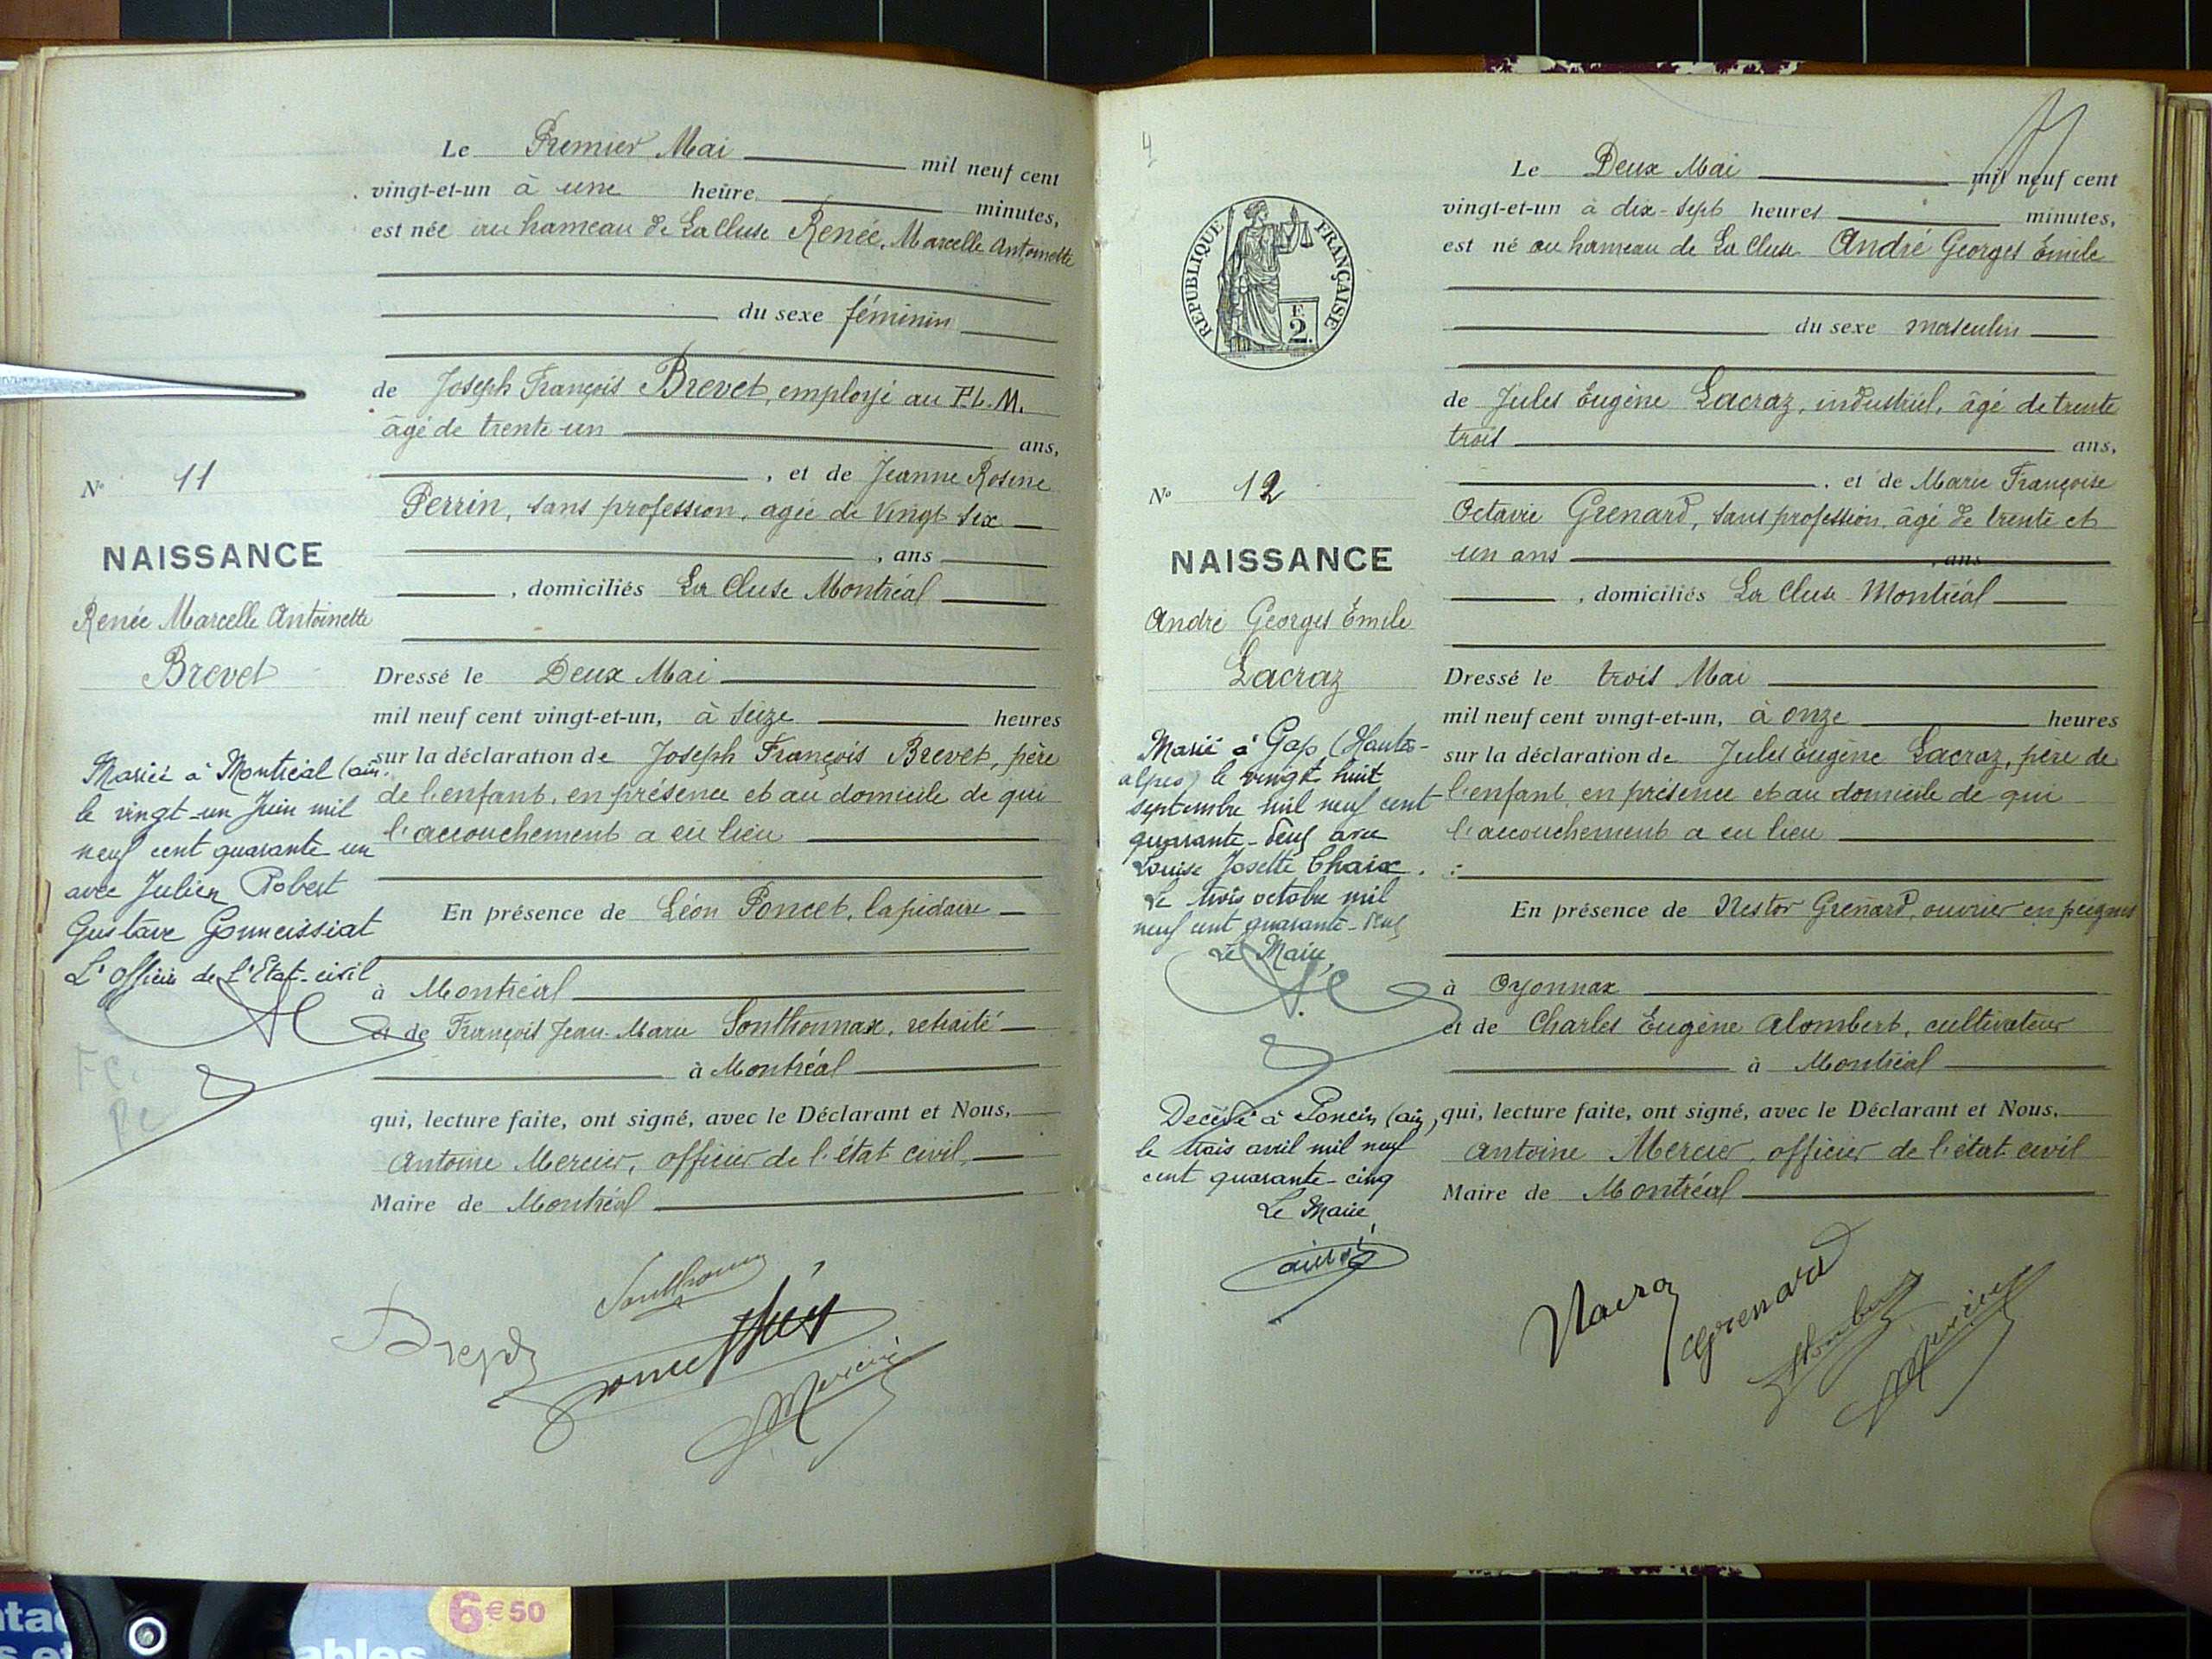 Le Premier Mai mil neuf cent
vingt-et-un à une heure minutes,
est née au hameau de La Cluse Renée, Marcelle Antoinette
du sexe féminin
de Joseph François Brevet, employé au P.L.M.
âgé de trente un ans,
, et de Jeanne Rosine
Perrin, sans profession, agée de Vingt six
, ans
, domiciliés La Cluse Montréal
Dressé le Deux Mai
mil neuf cent vingt-et-un, à seize heures
sur la déclaration de Joseph François Brevet, père
de l'enfant, en présence et au domicile de qui
l'accouchement a eu lieu
En présence de Léon Poncet, lapidaire
à Montréal
et de François Jean-Marie Sonthonnax, retraité
à Montréal
qui, lecture faite, ont signé, avec le Déclarant et Nous,
Antoine Mercier, officier de l'état civil,
Maire de Montréal
Nº 11
NAISSANCE
Renée Marcelle Antoinette
Brevet
Mariée à Montréal (ain
le vingt-un Juin mil
neuf cent quarante un
avec Julien Robert
Gustave Gonneissiat
L'officier de L'Etat-civil
4
RÉPUBLIQUE FRANÇAISE
F.
2.
Le Deux Mai mil neuf cent
vingt-et-un à dix-sept heures minutes,
est né au hameau de La Cluse André Georges Emile
du sexe masculin
de Jules Eugène Lacraz, industriel, âgé de trente
trois ans,
, et de Marie Françoise
Octavie Grenard, sans profession, âgé de trente et
un ans , ans
, domiciliés La Cluse Montréal
Dressé le trois Mai
mil neuf cent vingt-et-un, à onze heures
sur la déclaration de Jules Eugène Lacraz, père de
l'enfant, en présence et au domicile de qui
l'accouchement a eu lieu
En présence de Nestor Grenard, ouvrier en peignes
à Oyonnax
et de Charles Eugène Alombert, cultivateur
à Montréal
qui, lecture faite, ont signé, avec le Déclarant et Nous,
Antoine Mercier, officier de l'état civil
Maire de Montréal
Nº 12
NAISSANCE
André Georges Emile
Lacraz
Marié à Gap (Hautes-
alpes) le vingt huit
septembre mil neuf cent
quarante-deux avec
Louise Josette Chaix.
Le trois octobre mil
neuf cent quarante-deux
Le Maire,
Décédé à Poncin (ain)
le trois avril mil neuf
cent quarante-cinq
Le Maire
Grenard
6€50
ables